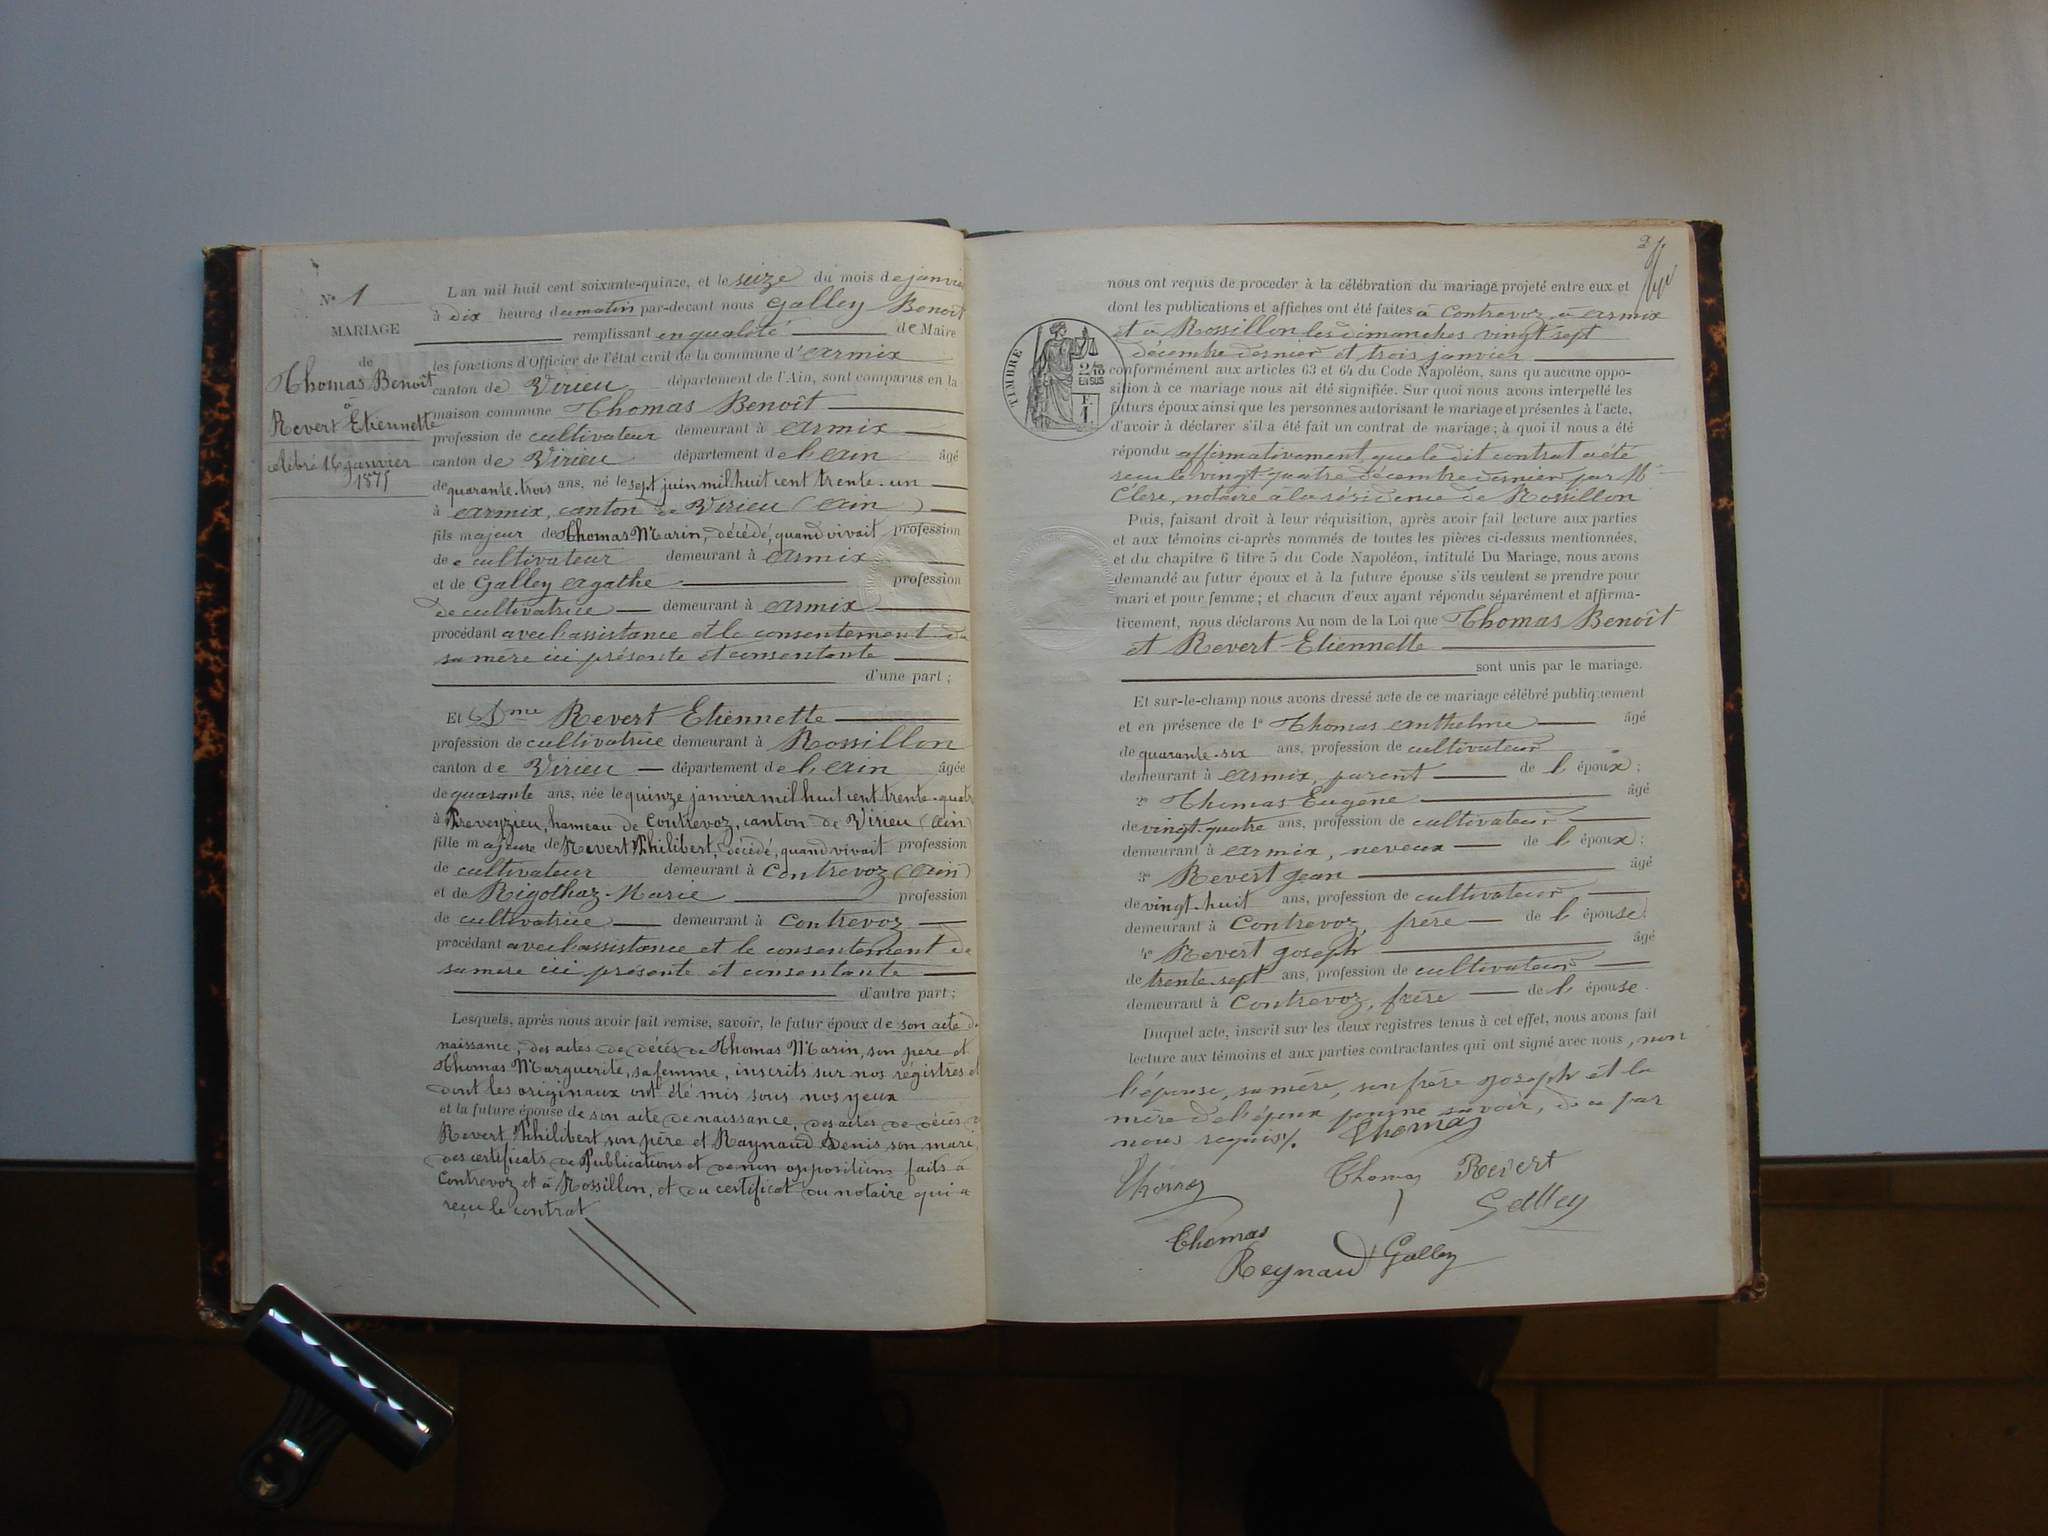 N° 1
MARIAGE
de
Thomas Benoît
à
Revert Etiennette
célébré 16 janvier
1875
L'an mil huit cent soixante-quinze, et le seize du mois de janvier
à dix heures du matin par-devant nous Galley Benoît
remplissant en qualité de Maire
les fonctions d'Officier de l'état civil de la commune d'Armix
canton de Virieu département de l'Ain, sont comparus en la
maison commune Thomas Benoît
profession de cultivateur demeurant à Armix
canton de Virieu département de l'Ain âgé
de quarante-trois ans, né le sept juin mil huit cent trente-un
à Armix, canton de Virieu (Ain)
fils majeur de Thomas Marin, décédé, quand vivait profession
de cultivateur demeurant à Armix
et de Galley Agathe profession
de cultivatrice demeurant à Armix
procédant avec l'assistance et le consentement de
sa mère ici présente et consentante
d'une part ;
Et Dme Revert Etiennette
profession de cultivatrice demeurant à Rossillon
canton de Virieu département de l'Ain âgée
de quarante ans, née le quinze janvier mil huit cent trente-quatre
à Preveyzieu, hameau de Contrevoz, canton de Virieu (Ain)
fille majeure de Revert Philibert, décédé, quand vivait profession
de cultivateur demeurant à Contrevoz (Ain)
et de Rigothaz Marie profession
de cultivatrice demeurant à Contrevoz
procédant avec l'assistance et le consentement de
sa mère ici présente et consentante
d'autre part ;
Lesquels, après nous avoir fait remise, savoir, le futur époux de son acte de
naissance, des actes de décès de Thomas Marin, son père et
Thomas Marguerite, sa femme, inscrits sur nos registres et
dont les originaux ont été mis sous nos yeux
et la future épouse de son acte de naissance, des actes de décès de
Revert Philibert, son père et Raynaud Denis son mari,
des certificats de Publications et de non oppositions faits à
Contrevoz et à Rossillon, et du certificat du notaire qui a
reçu le contrat
2
nous ont requis de proceder à la célébration du mariage projeté entre eux et
dont les publications et affiches ont été faites à Contrevoz, à Armix
et à Rossillon les dimanches vingt-sept
décembre dernier et trois janvier
TIMBRE
2/10 EN SUS
F. 1.
conformément aux articles 63 et 64 du Code Napoléon, sans qu'aucune oppo-
sition à ce mariage nous ait été signifiée. Sur quoi nous avons interpellé les
futurs époux ainsi que les personnes autorisant le mariage et présentes à l'acte,
d'avoir à déclarer s'il a été fait un contrat de mariage ; à quoi il nous a été
répondu affirmativement que le dit contrat a été
recu le vingt-quatre décembre dernier par Me
Clerc, notaire à la résidence de Rossillon
Puis, faisant droit à leur réquisition, après avoir fait lecture aux parties
et aux témoins ci-après nommés de toutes les pièces ci-dessus mentionnées,
et du chapitre 6 titre 5 du Code Napoléon, intitulé Du Mariage, nous avons
demandé au futur époux et à la future épouse s'ils veulent se prendre pour
mari et pour femme ; et chacun d'eux ayant répondu séparément et affirma-
tivement, nous déclarons Au nom de la Loi que Thomas Benoît
et Revert Etiennette
sont unis par le mariage.
Et sur-le-champ nous avons dressé acte de ce mariage célébré publiquement
et en présence de 1° Thomas Anthelme âgé
de quarante-six ans, profession de cultivateur
demeurant à Armix, parent de l'époux ;
2° Thomas Eugène âgé
de vingt-quatre ans, profession de cultivateur
demeurant à Armix, neveux de l'époux ;
3° Revert Jean âgé
de vingt-huit ans, profession de cultivateur
demeurant à Contrevoz, frère de l'épouse
4° Revert Joseph âgé
de trente-sept ans, profession de cultivateur
demeurant à Contrevoz, frère de l'épouse.
Duquel acte, inscrit sur les deux registres tenus à cet effet, nous avons fait
lecture aux témoins et aux parties contractantes qui ont signé avec nous, non
l'épouse, sa mère, son frère Joseph et la
mère de l'époux pour ne savoir, de ce par
nous requis. Thomas
Thomas Thomas Revert
Galley
Thomas
Reynaud Galley